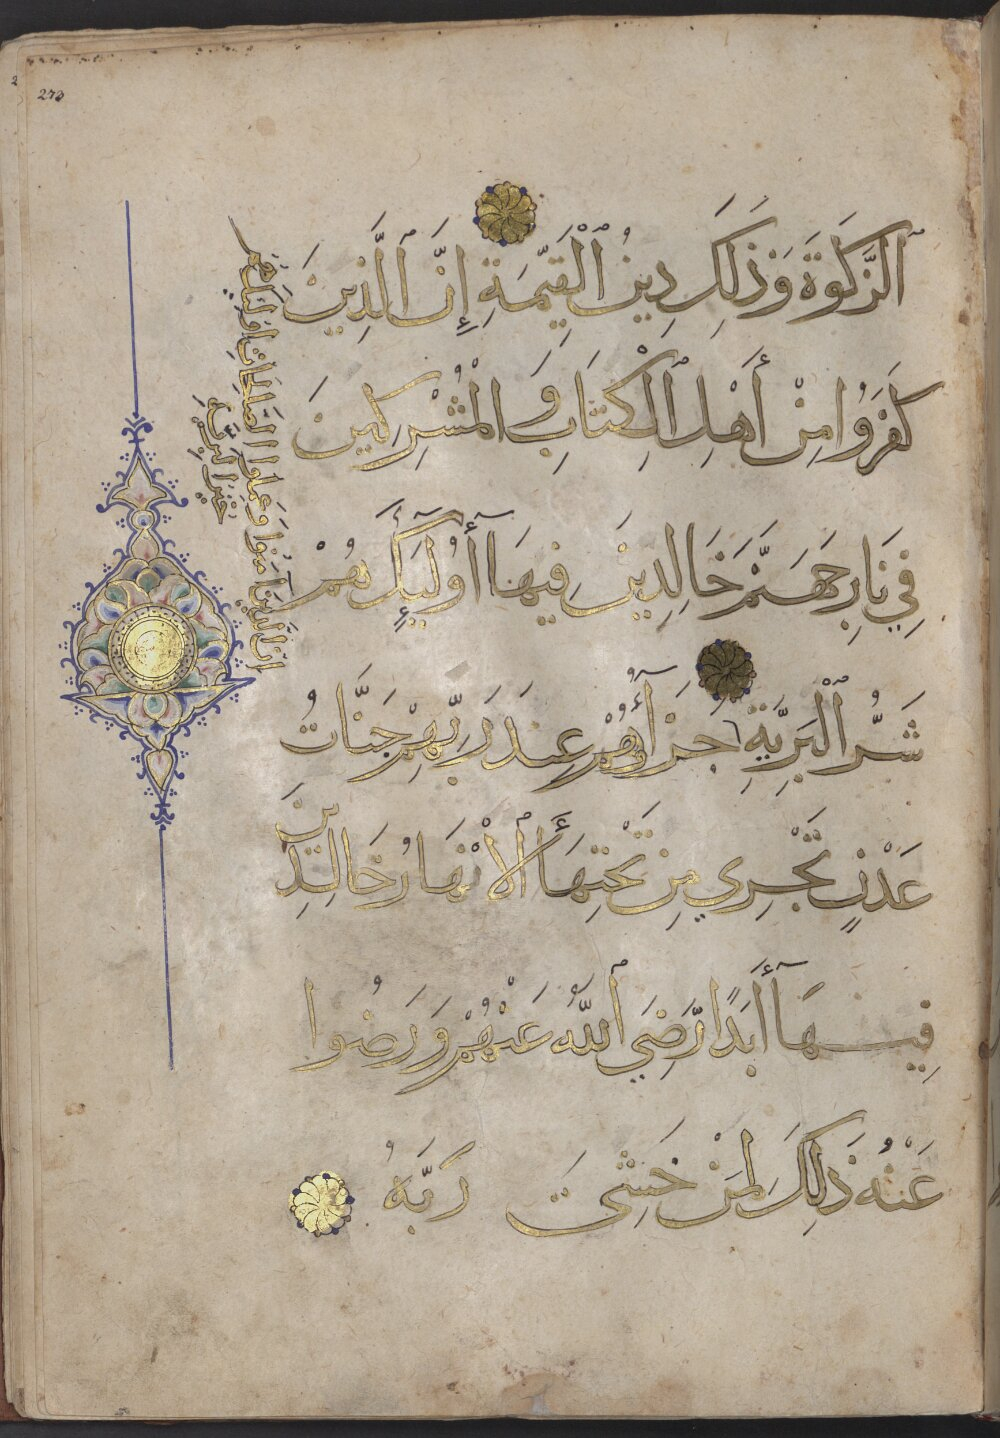 273
ٱلزَّكَوٰةَ وَذَلِكَ دِينُ ٱلْقَيِّمَةِ إِنَّ ٱلَّذِينَ
كَفَرُوا مِنْ أَهْلِ ٱلْكِتَابِ وَالْمُشْرِكِينَ
فِي نَارِ جَهَنَّمَ خَالِدِينَ فِيهَآ أُولَٰٓئِكَ هُمْ
شَرُّ ٱلْبَرِيَّةِ جَزَآؤُهُمْ عِنْدَ رَبِّهِمْ جَنَّاتُ
عَدْنٍ تَجْرِي مِنْ تَحْتِهَا ٱلْأَنْهَارُ خَالِدِينَ
فِيهَآ أَبَدًا رَضِيَ ٱللَّهُ عَنْهُمْ وَرَضُوا
عَنْهُ ذَلِكَ لِمَنْ خَشِيَ رَبَّهُ
إِنَّ الَّذِينَ آمَنُوا وَعَمِلُوا الصَّالِحَاتِ أُولَٰئِكَ هُمْ
خَيْرُ الْبَرِيَّةِ